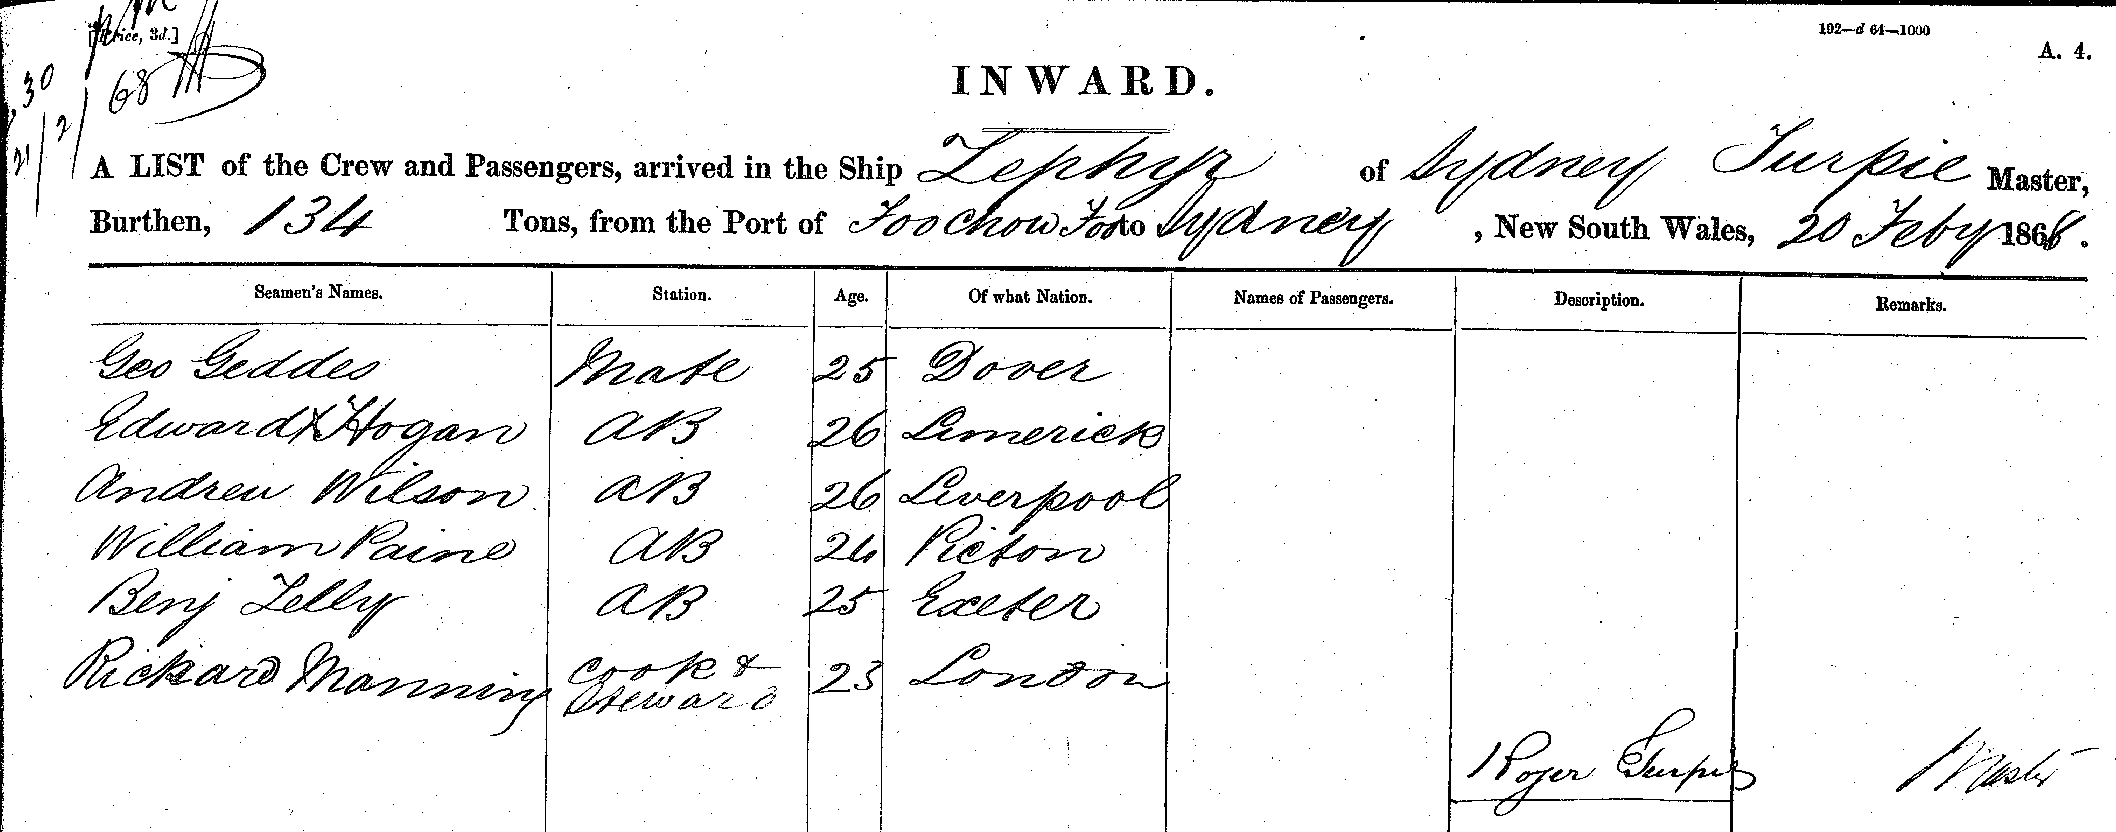 [Price, 3d.]
68
30
21/2/
192—d 64—1000
A. 4.
INWARD.
A LIST of the Crew and Passengers, arrived in the Ship Zephyr of Sydney Turpie Master,
Burthen, 134 Tons, from the Port of Foochow Foo to Sydney, New South Wales, 20 Feby 1868.
Seamen's Names. Station. Age. Of what Nation. Names of Passengers. Description. Remarks.
Geo Geddes Mate 25 Dover
Edward Hogan AB 26 Limerick
Andrew Wilson AB 26 Liverpool
William Paine AB 24 Picton
Benj Zelly AB 25 Exeter
Richard Manning Cook & 23 London
Steward
Roger Turpie Master